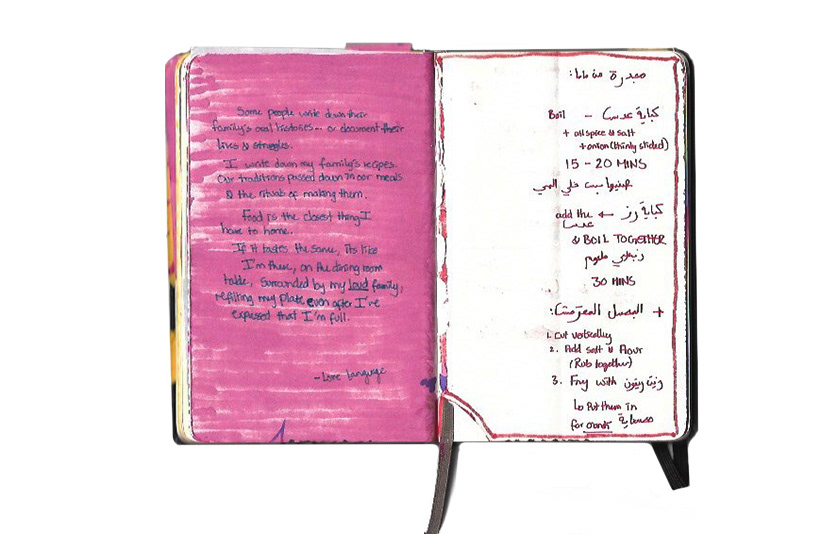 Some people write down their
family's oral histories... or document their
lives & struggles.
I write down my family's recipes.
Our traditions passed down in our meals
& the rituals of making them.
Food is the closest thing I
have to home..
If it tastes the same, its like
I'm there, on the dining room
table, surrounded by my loud family,
refilling my plate even after I've
expressed that I'm full.
-Love language
مجدرة من ماما:
كباية عدس - Boil
+ allspice & salt
+ onion (thinly sliced)
15 - 20 MINS
خلي المي
كباية رز ← add the
عدس
& BOIL TOGETHER
30 MINS
+ البصل المقرمش:
1. Cut vertically
2. Add salt & flour
(Rub together)
3. Fry with زيت زيتون
↳ Put them in
مصفاية
for crunch